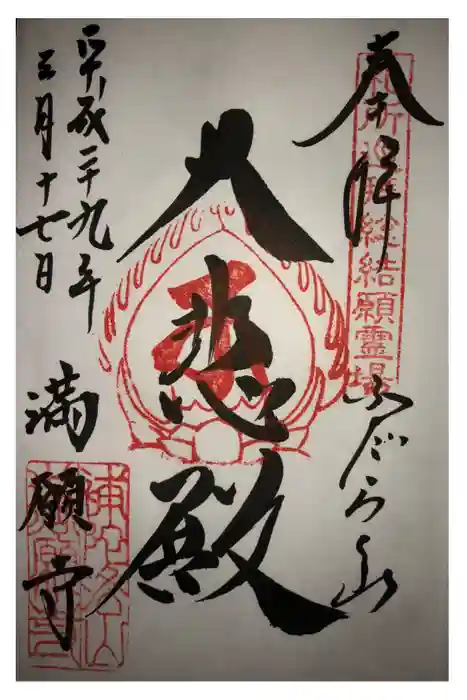 奉拝
総結願霊場
ふだら山
大悲殿
平成二十九年
三月十七日
満願寺